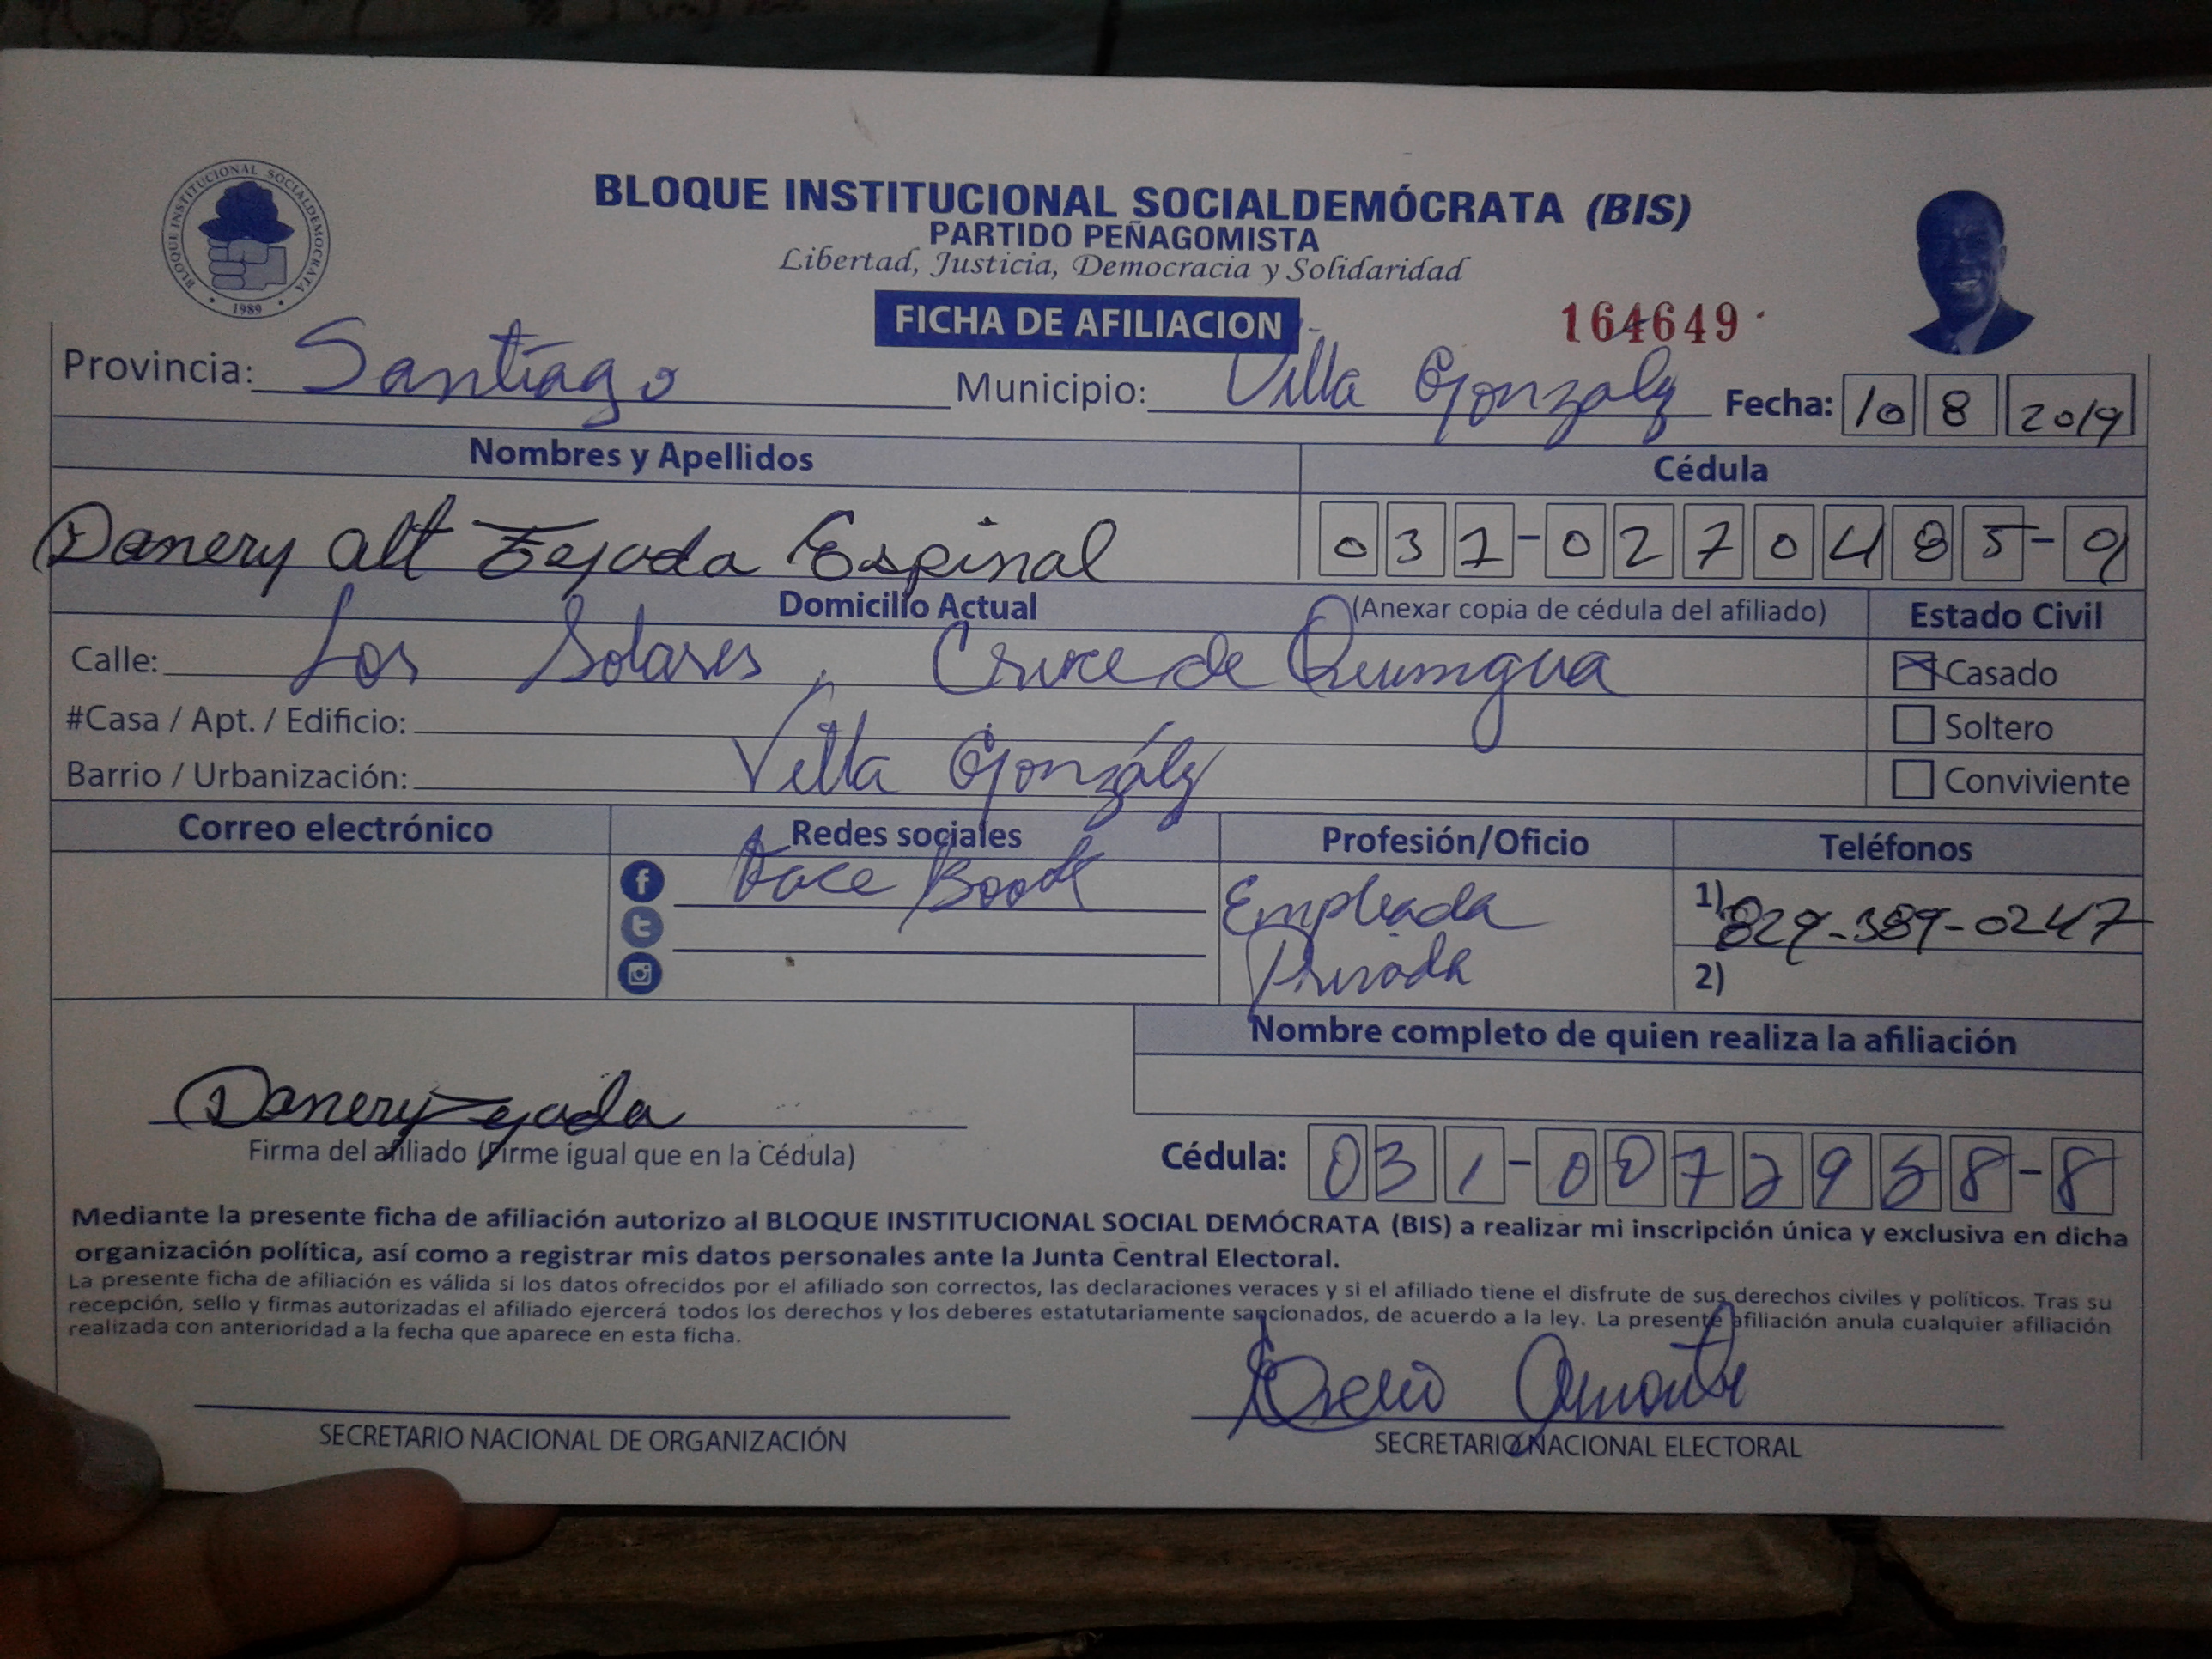 BLOQUE INSTITUCIONAL SOCIALDEMOCRATA
1989
BLOQUE INSTITUCIONAL SOCIALDEMÓCRATA (BIS)
PARTIDO PEÑAGOMISTA
Libertad, Justicia, Democracia y Solidaridad
FICHA DE AFILIACION
164649
Provincia: Santiago Municipio: Villa Gonzalez Fecha: 10 8 2019
Nombres y Apellidos Cédula
Danery alt Tejada Espinal 031-0270485-9
Domicilio Actual (Anexar copia de cédula del afiliado) Estado Civil
Calle: Los Solares, Cruce de Quinigua Casado
#Casa / Apt. / Edificio: Soltero
Barrio / Urbanización: Villa González Conviviente
Correo electrónico Redes sociales Profesión/Oficio Teléfonos
Face Book Empleada Privada 1) 829-389-0247
2)
Nombre completo de quien realiza la afiliación
Danery Tejada
Firma del afiliado (Firme igual que en la Cédula) Cédula: 031-0072968-8
Mediante la presente ficha de afiliación autorizo al BLOQUE INSTITUCIONAL SOCIAL DEMÓCRATA (BIS) a realizar mi inscripción única y exclusiva en dicha
organización política, así como a registrar mis datos personales ante la Junta Central Electoral.
La presente ficha de afiliación es válida si los datos ofrecidos por el afiliado son correctos, las declaraciones veraces y si el afiliado tiene el disfrute de sus derechos civiles y políticos. Tras su
recepción, sello y firmas autorizadas el afiliado ejercerá todos los derechos y los deberes estatutariamente sancionados, de acuerdo a la ley. La presente afiliación anula cualquier afiliación
realizada con anterioridad a la fecha que aparece en esta ficha.
SECRETARIO NACIONAL DE ORGANIZACIÓN SECRETARIO NACIONAL ELECTORAL